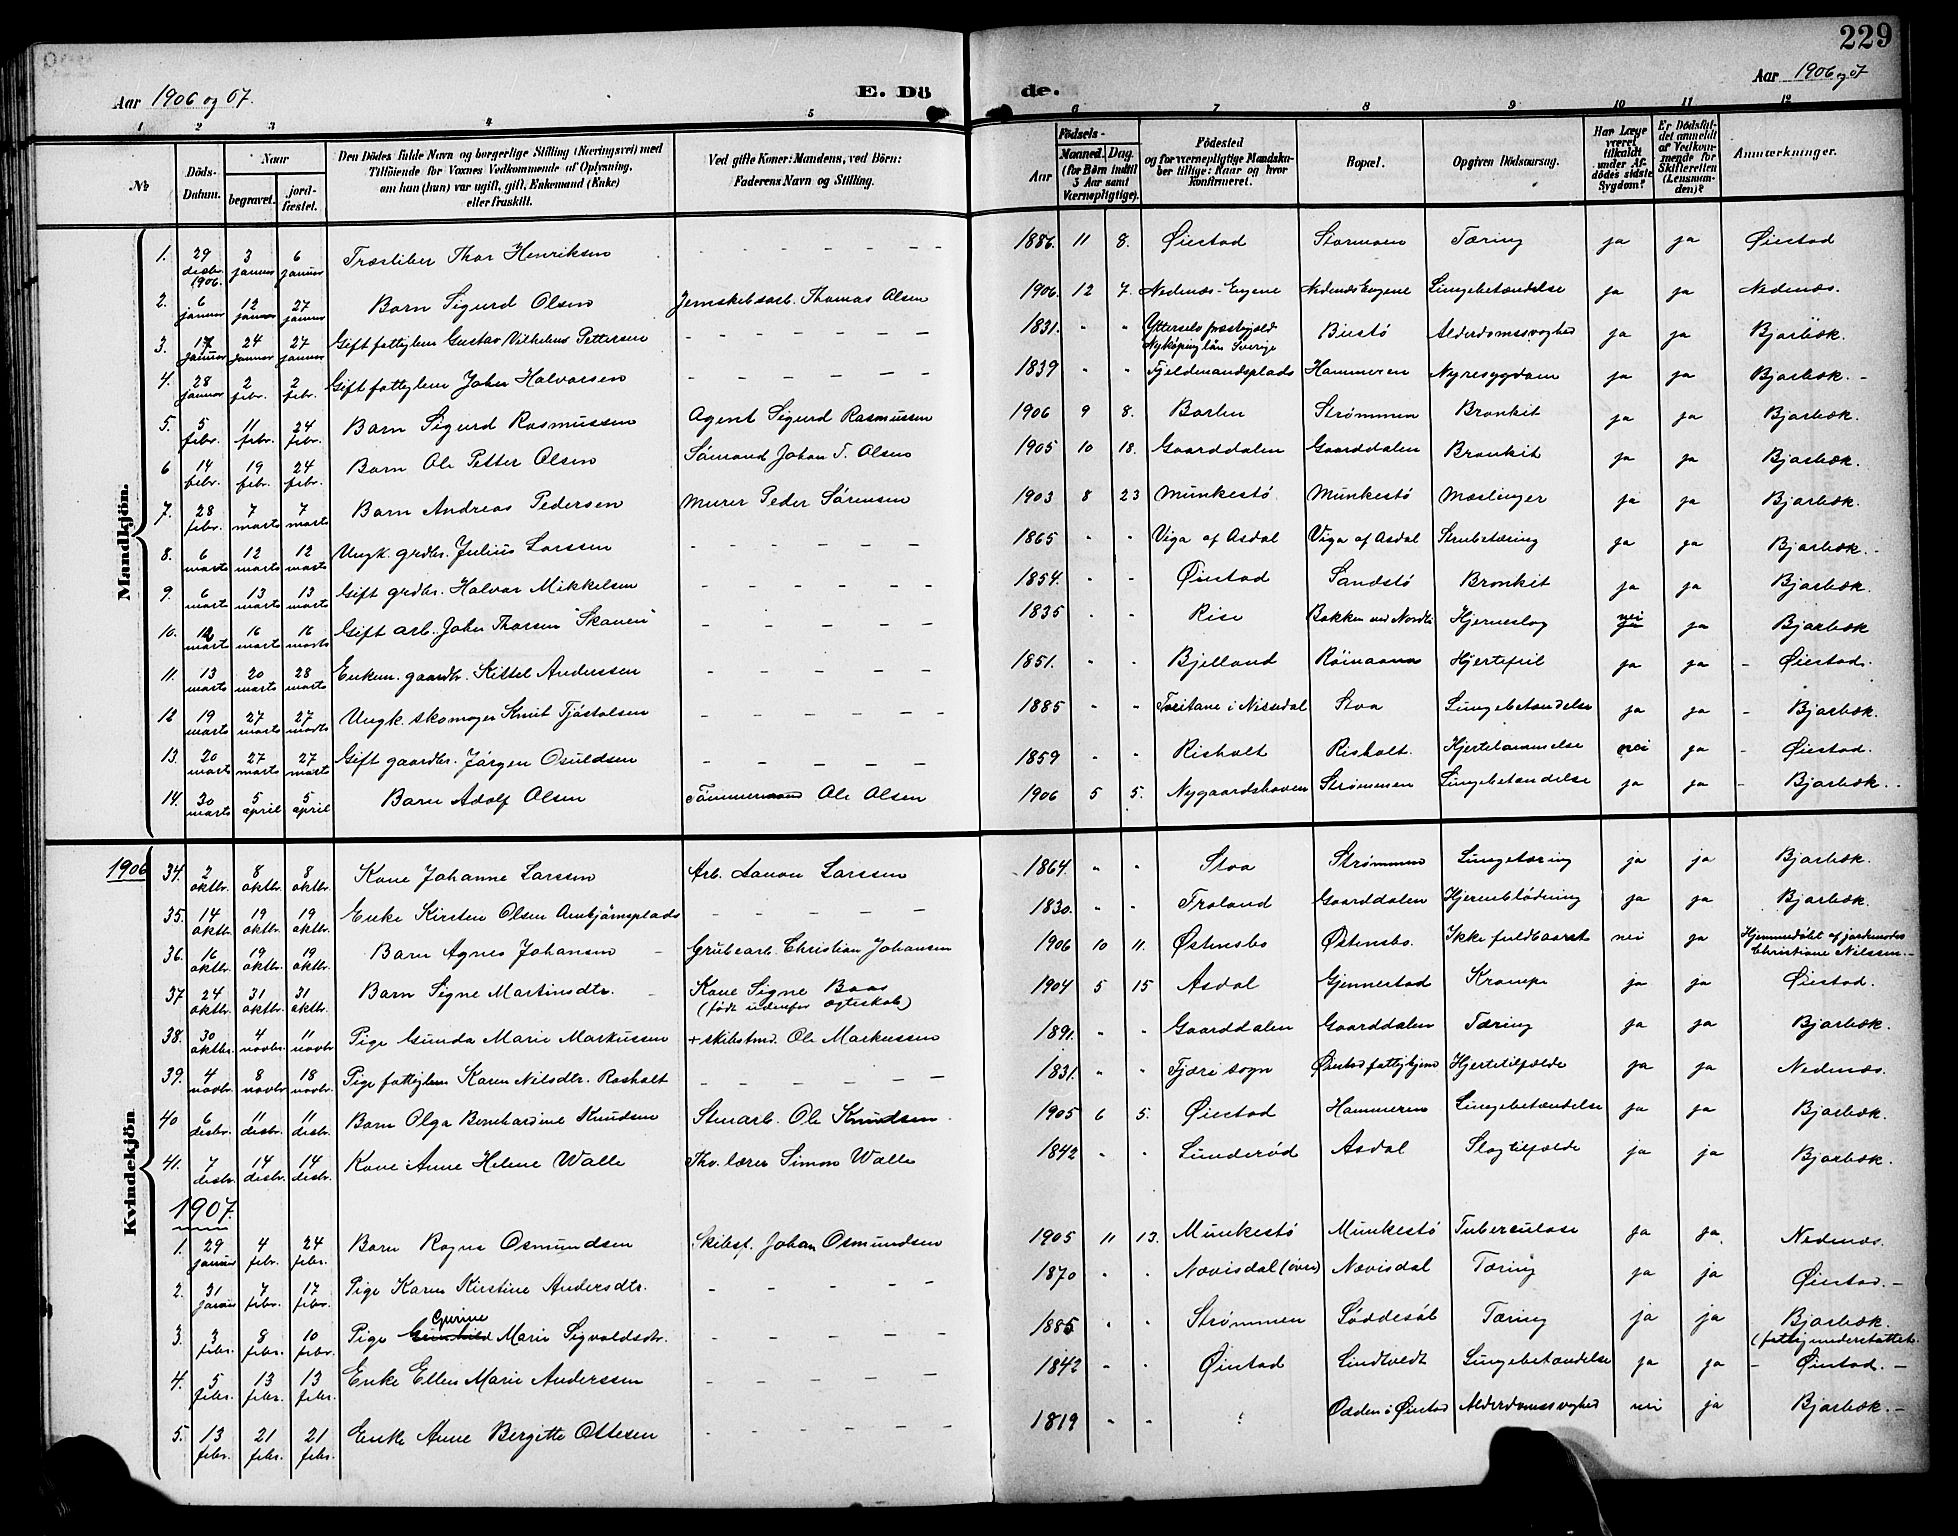 229
Aar 1906 og 07.
E. Dö
de.
Aar 1906 og 07
1 2 3 4 5 6 7 8 9 10 11 12
No
Döds-Datum.
Naar
begravet.
jordfæstet.
Den Dödes fulde Navn og borgerlige Stilling (Næringsvei) med
Tilföiende for Voxnes Vedkommende af Oplysning,
om han (hun) var ugift, gift, Enkemand (Enke)
eller fraskilt.
Ved gifte Koner: Mandens, ved Börn:
Faderens Navn og Stilling.
Födsels-
Aar
Maaned. Dag.
(for Börn indtil
5 Aar samt
Værnepligtige).
Födested
og for værnepligtige Mandskaber tillige: Naar og hvor
Konfirmeret.
Bopæl.
Opgiven Dödsaarsag.
Har Læge været tilkaldt under Afdödes sidste Sygdom?
Er Dödsfaldet anmeldt af Vedkommende for Skifteretten (Lensmanden)?
Anmærkninger.
Mandkjön.
1. 29 desbr. 1906. 3 januar 6 januar Træsliber Thor Henriksen - - - - - - 1886. 11 8. Øiestad Stormoen Tæring ja ja Øiestad
2. 6 januar 12 januar 27 januar Barn Sigurd Olsen Jernskibsarb. Thomas Olsen 1906. 12 7. Nedenæs-Engene Nedenæs Engene Lungebetændelse ja ja Nedenæs.
3. 17 januar 24 januar 27 januar Gift fattiglem Gustav Vilhelms Pettersen - - - - - - 1831. " " Ytterselö præstegjeld Nyköping län Sverige Biestö Alderdomssvaghed ja ja Bjorbæk.
4. 28 januar 2 febr. 2 febr. Gift fattiglem John Halvorsen - - - - - - 1839 " " Fjeldmandsplads Hammeren Nyresygdom ja ja Bjorbæk. -
5. 5 febr. 11 febr. 24 febr. Barn Sigurd Rasmussen Agent Sigurd Rasmussen 1906 9 8. Barlin Strømmen Bronkit ja ja Bjorbæk.
6 14 febr. 19 febr. 24 febr. Barn Ole Petter Olsen Sömand Johan T. Olsen 1905 10 18. Gaarddalen Gaarddalen Bronkit ja ja Bjorbæk.
7. 28 febr. 7 marts 7 marts Barn Andreas Pedersen Murer Peder Sørensen 1903 8 23 Munkestö Munkestö Mæslinger ja ja Bjorbæk.
8. 6 marts 12 marts 12 marts Ungk. grdbr. Julius Larssen - - - - - - 1865 " " Viga af Asdal Viga af Asdal Strubetæring ja ja Bjorbæk. -
9. 6 marts 13 marts 13 marts Gift grdbr. Halvor Mikkelsen - - - - - - 1854. " " Øiestad Sandstö Bronkit ja ja Bjorbæk.
10. 12 marts 16 marts 16 marts Gift arb. John Thorsen "Skanen" - - - - - - 1835 " " Rise Bakken ved Hjerneslag nei ja Bjorbæk
11. 13 marts 20 marts 28 marts Enkem. gaardbr. Kittel Anderssen - - - - - - 1851. " " Bjelland Hjertefeil ja ja - Øiestad.
12 19 marts 27 marts 27 marts Ungk. skomager Knut Tjöstolsen - - - - - - 1885 " " i Nissedal Stoa Lungebetændelse ja ja - Bjorbæk.
13. 20 marts 27 marts 27 marts Gift gaardbr. Jörgen Osuldsen - - - - - - 1859 " " Risholt Risholt. Hjertelammelse nei ja - Øiestad.
14. 30 marts 5 april 5 april Barn Adolf Olsen Tömmermand Ole Olsen 1906 5 5. Nygaardshaven Strømmen Lungebetændelse ja ja - Bjorbæk.
Kvindekjön
1906
34. 2 oktbr. 8 oktbr. 8 oktbr. Kone Johanne Larssen Arb. Larssen 1864. " " Stoa Strømmen Lungetæring ja ja Bjorbæk.
35. 14 oktbr. 19 oktbr. 19 oktbr. Enke Kirsten Olsen Arnbjörnsplads - - - - - 1830. " " Froland Gaarddalen Hjerneblödning ja ja Bjorbæk.
36. 16 oktbr. 19 oktbr. 19 oktbr. Barn Agnes Johansen - Grubearb. Christian Johansen 1906 10 11. Østensbo Østensbo. Ikke fuldbaaret nei ja Hjemmedöbt af jordmoder Christiane Nilssen.-
37 24 oktbr. 31 oktbr. 31 oktbr. Barn Signe Martinsdtr. - Kone Signe Boas (född udenfor ægteskab) 1904 5 15 Asdal Gjennestad Krampe ja ja Øiestad.
38. 30 oktbr. 4 novbr. 11 novbr Pige Gunda Marie Markussen + skibstmd. Ole Markussen 1891. " " Gaarddalen Gaarddalen Tæring ja ja Bjorbæk.
39. 4 novbr. 8 novbr. 18 novbr. Pige fattiglem Karen Nilsdtr. Rosholt - - - - - - 1831. " " Fjære sogn Øiestad fattighjem Hjertetilfælde ja ja Nedenæs.
40 6 desbr. 11 desbr. 11 desbr. Barn Olga Bernhardine Knudsen Stenarb. Ole Knudsen 1905 6 5. Øiestad Hammeren Lungebetændelse ja ja Bjorbæk.
41. 7 desbr. 14 desbr. 14 desbr. Kone Anne Helene Walle Fhv. lærer Simon Walle 1842 " " Lunderød Asdal Slagtilfælde ja ja Bjorbæk.
1907.
1. 29 januar 4 febr. 24 febr. Barn Ragna Osmundsen Skibst. Johan Osmundsen 1905 11 13. Munkestö Munkestö Tuberculose ja ja. Nedenæs.
2. 31 januar 7 febr. 17 febr. Pige Karen Kirstine Andersdtr. - - - - - - 1870 " " Nævisdal (övre) Nævisdal Tæring ja ja Øiestad. -
3. 3 febr. 8 febr. 10 febr. Pige Gurine Marie Sigvaldsdtr. - - - - - - 1885 " " Strømmen Løddesöl Tæring ja ja Bjorbæk. (fattigunderstöttet.
4. 5 febr. 13 febr. 13 febr. Enke Ellen Marie Anderssen - - - - - - 1842 " " Øiestad Lindtvedt Lungebetændelse ja ja - Øiestad. -
5. 13 febr. 21 febr. 21 febr. Enke Anne Bergitte Ottesen - - - - - - 1819 " " ? Odden i Øiestad Alderdomssvaghed nei ja Bjorbæk. -